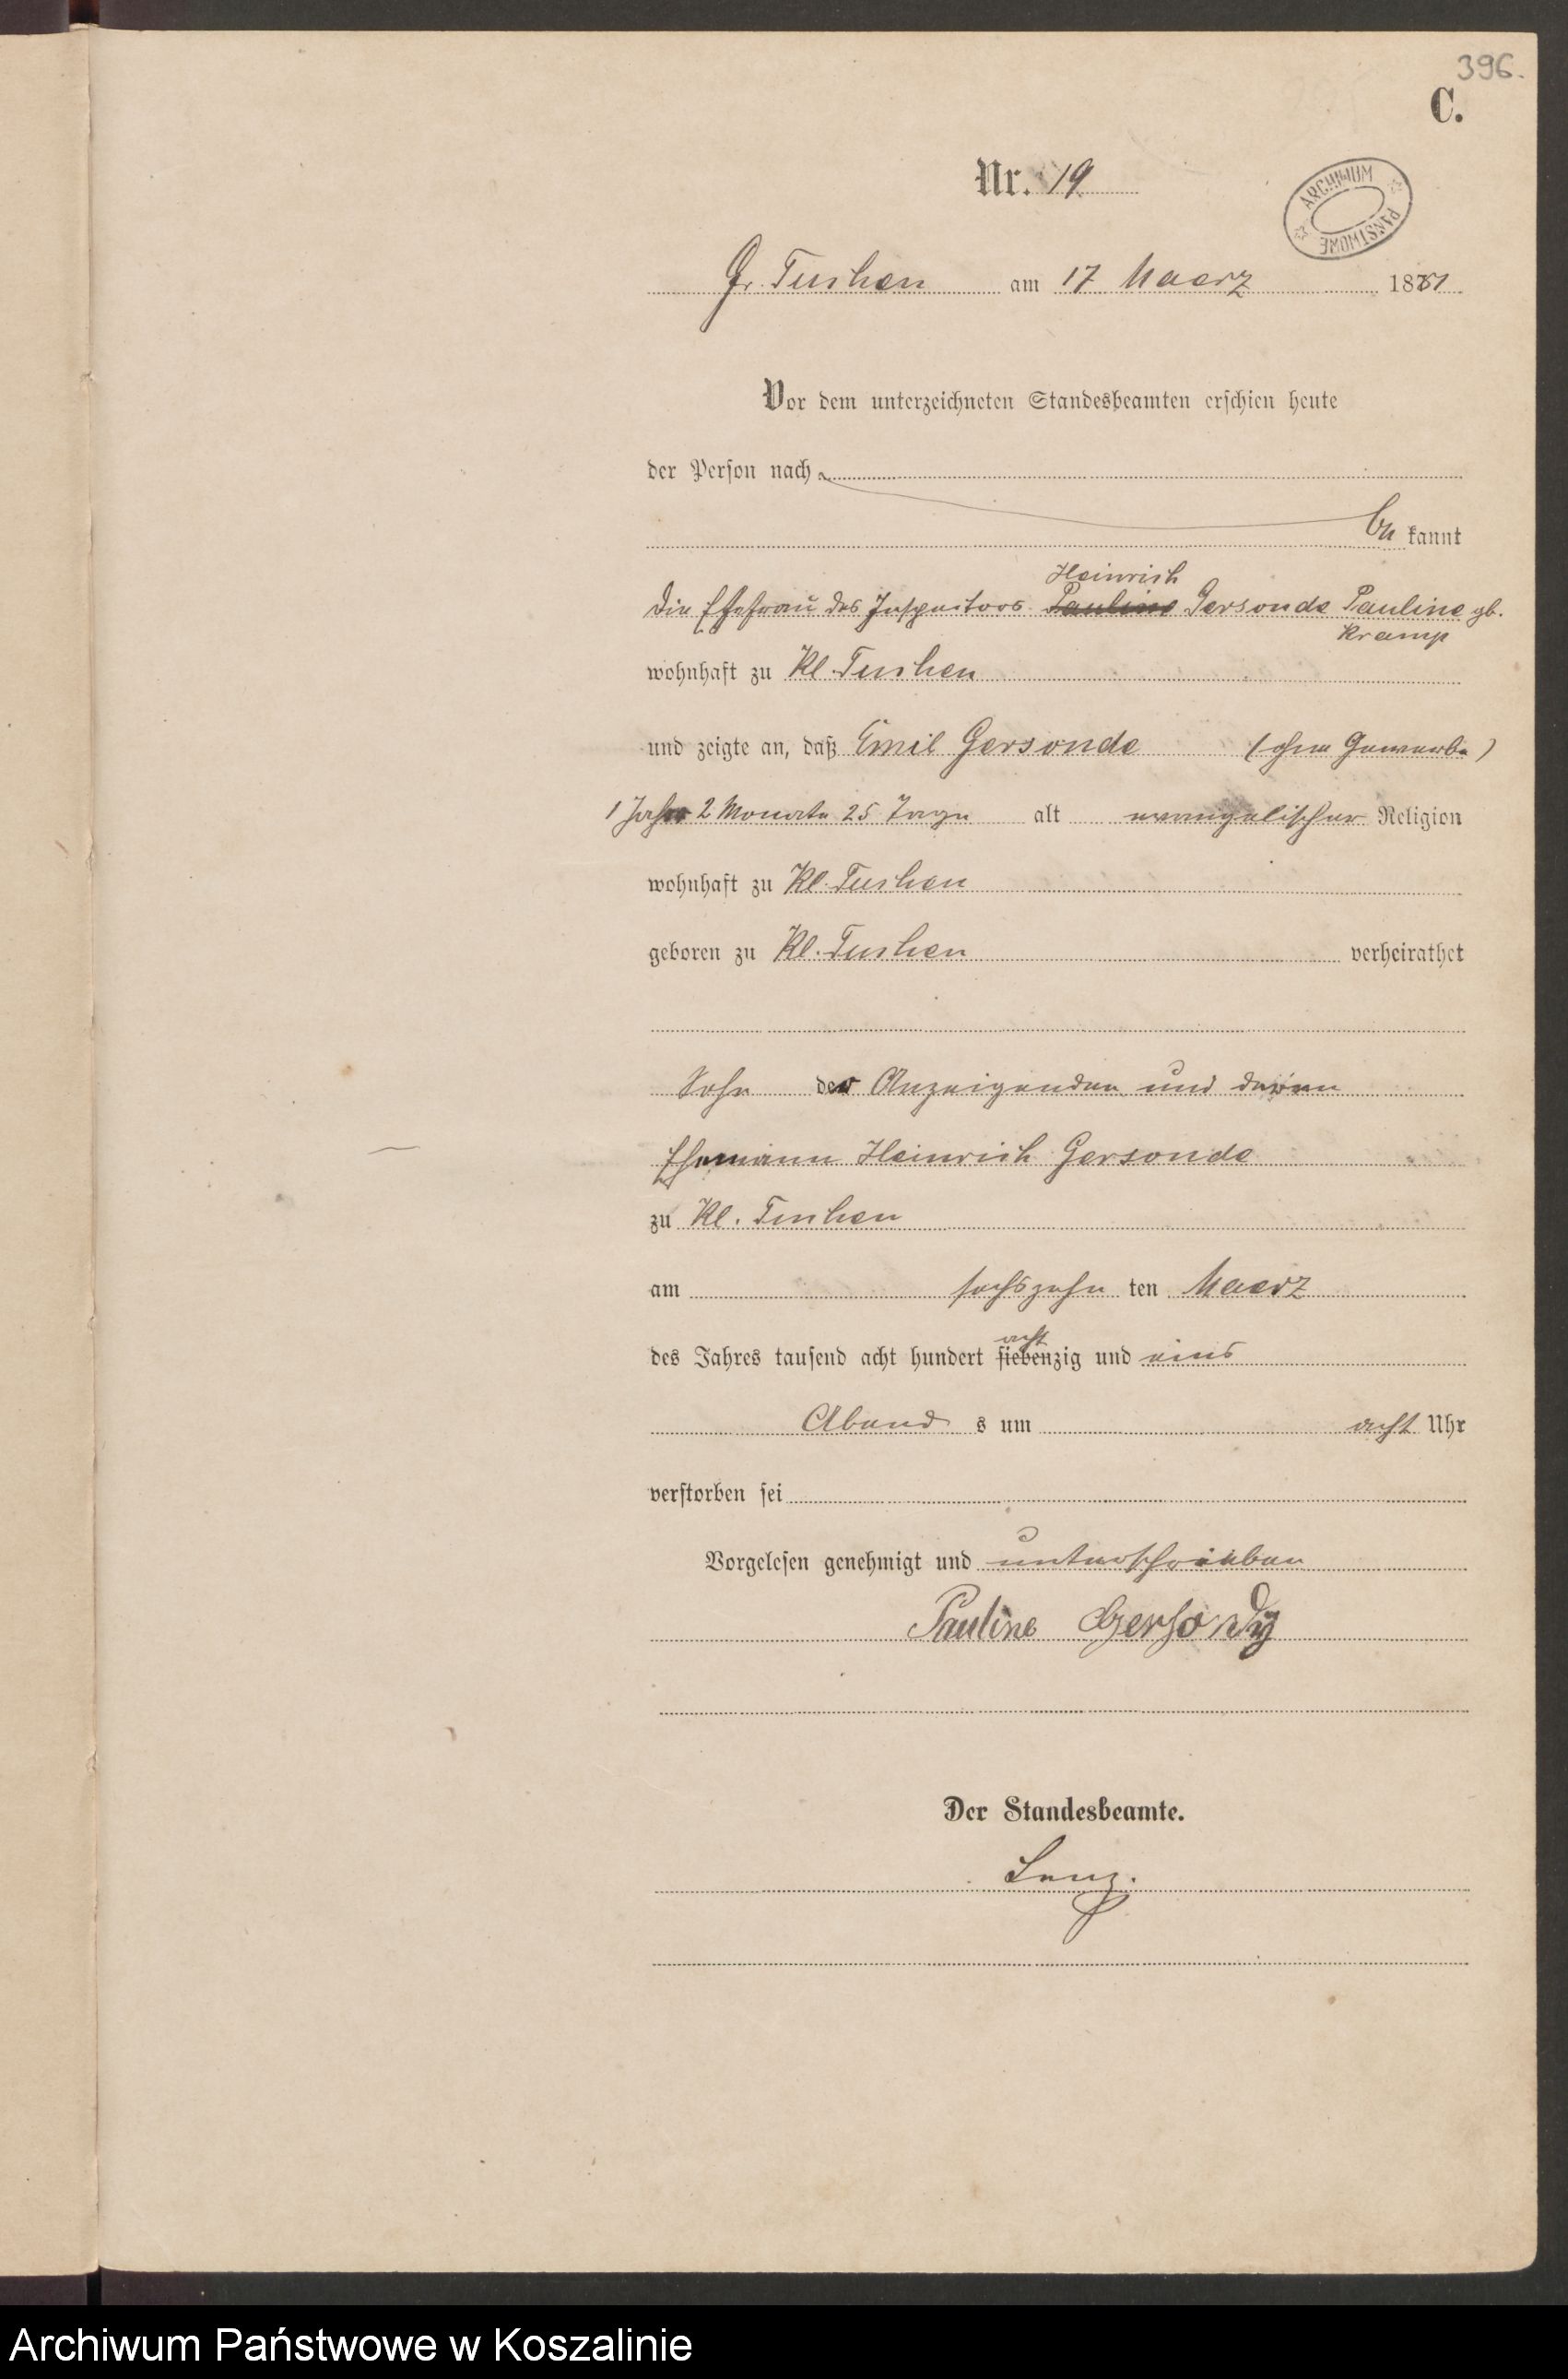 396.
C.
Nr. 19
ARCHIWUM PAŃSTWOWE
Gr. Tuchen am 17 Maerz 1881
Vor dem unterzeichneten Standesbeamten erschien heute
der Person nach
be kannt
Heinrich
die Ehefrau des Inspectors Pauline Gersonde Pauline gb.
Kramp
wohnhaft zu Kl. Tuchen
und zeigte an, daß Emil Gersonde (ohne Gewerbe)
1 Jahr 2 Monate 25 Tage alt evangelischer Religion
wohnhaft zu Kl. Tuchen
geboren zu Kl. Tuchen verheirathet
Sohn der Anzeigenden und deren
Ehemann Heinrich Gersonde
zu Kl. Tuchen
am sechszehn ten Maerz
acht
des Jahres tausend acht hundert siebenzig und eins
Abend s um acht Uhr
verstorben sei
Vorgelesen genehmigt und unterschrieben
Pauline
Der Standesbeamte.
Lenz.
Archiwum Państwowe w Koszalinie